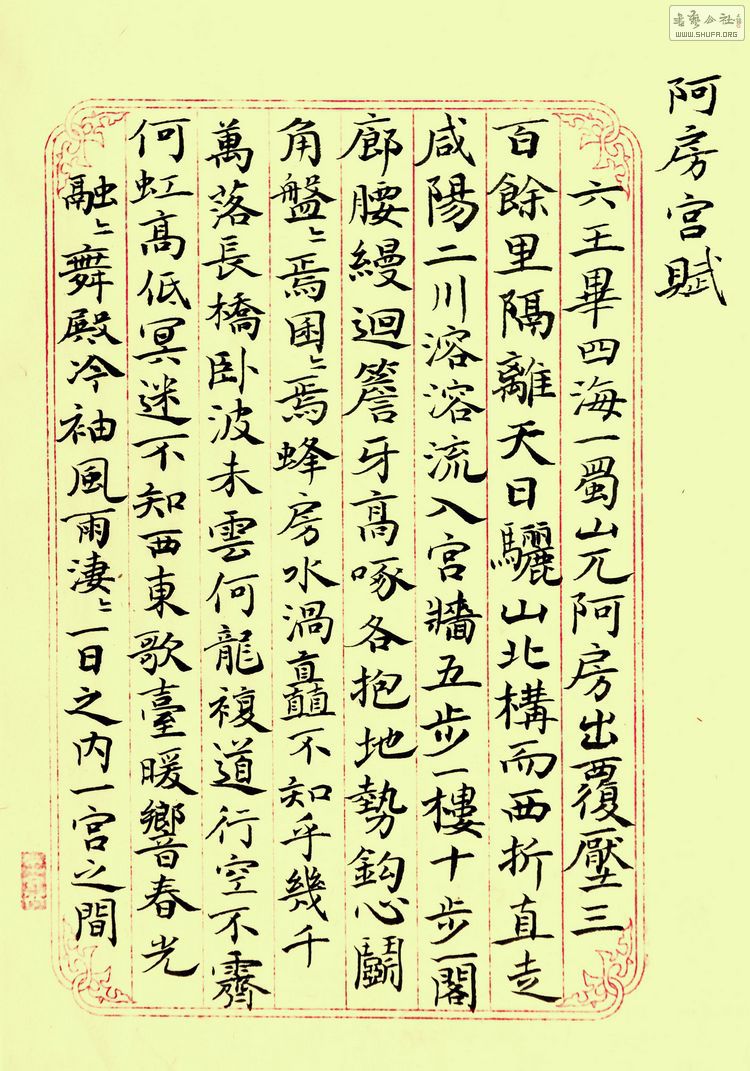 阿房宮賦
六王畢四海一蜀山兀阿房出覆壓三
百餘里隔離天日驪山北構而西折直走
咸陽二川溶溶流入宮牆五步一樓十步一閣
廊腰縵迴簷牙高啄各抱地勢鈎心鬭
角盤〻焉囷〻焉蜂房水渦矗不知乎幾千
萬落長橋卧波未雲何龍複道行空不霽
何虹高低冥迷不知西東歌臺暖響春光
融〻舞殿冷袖風雨淒〻一日之內一宮之間
書藝公社
WWW.SHUFA.ORG